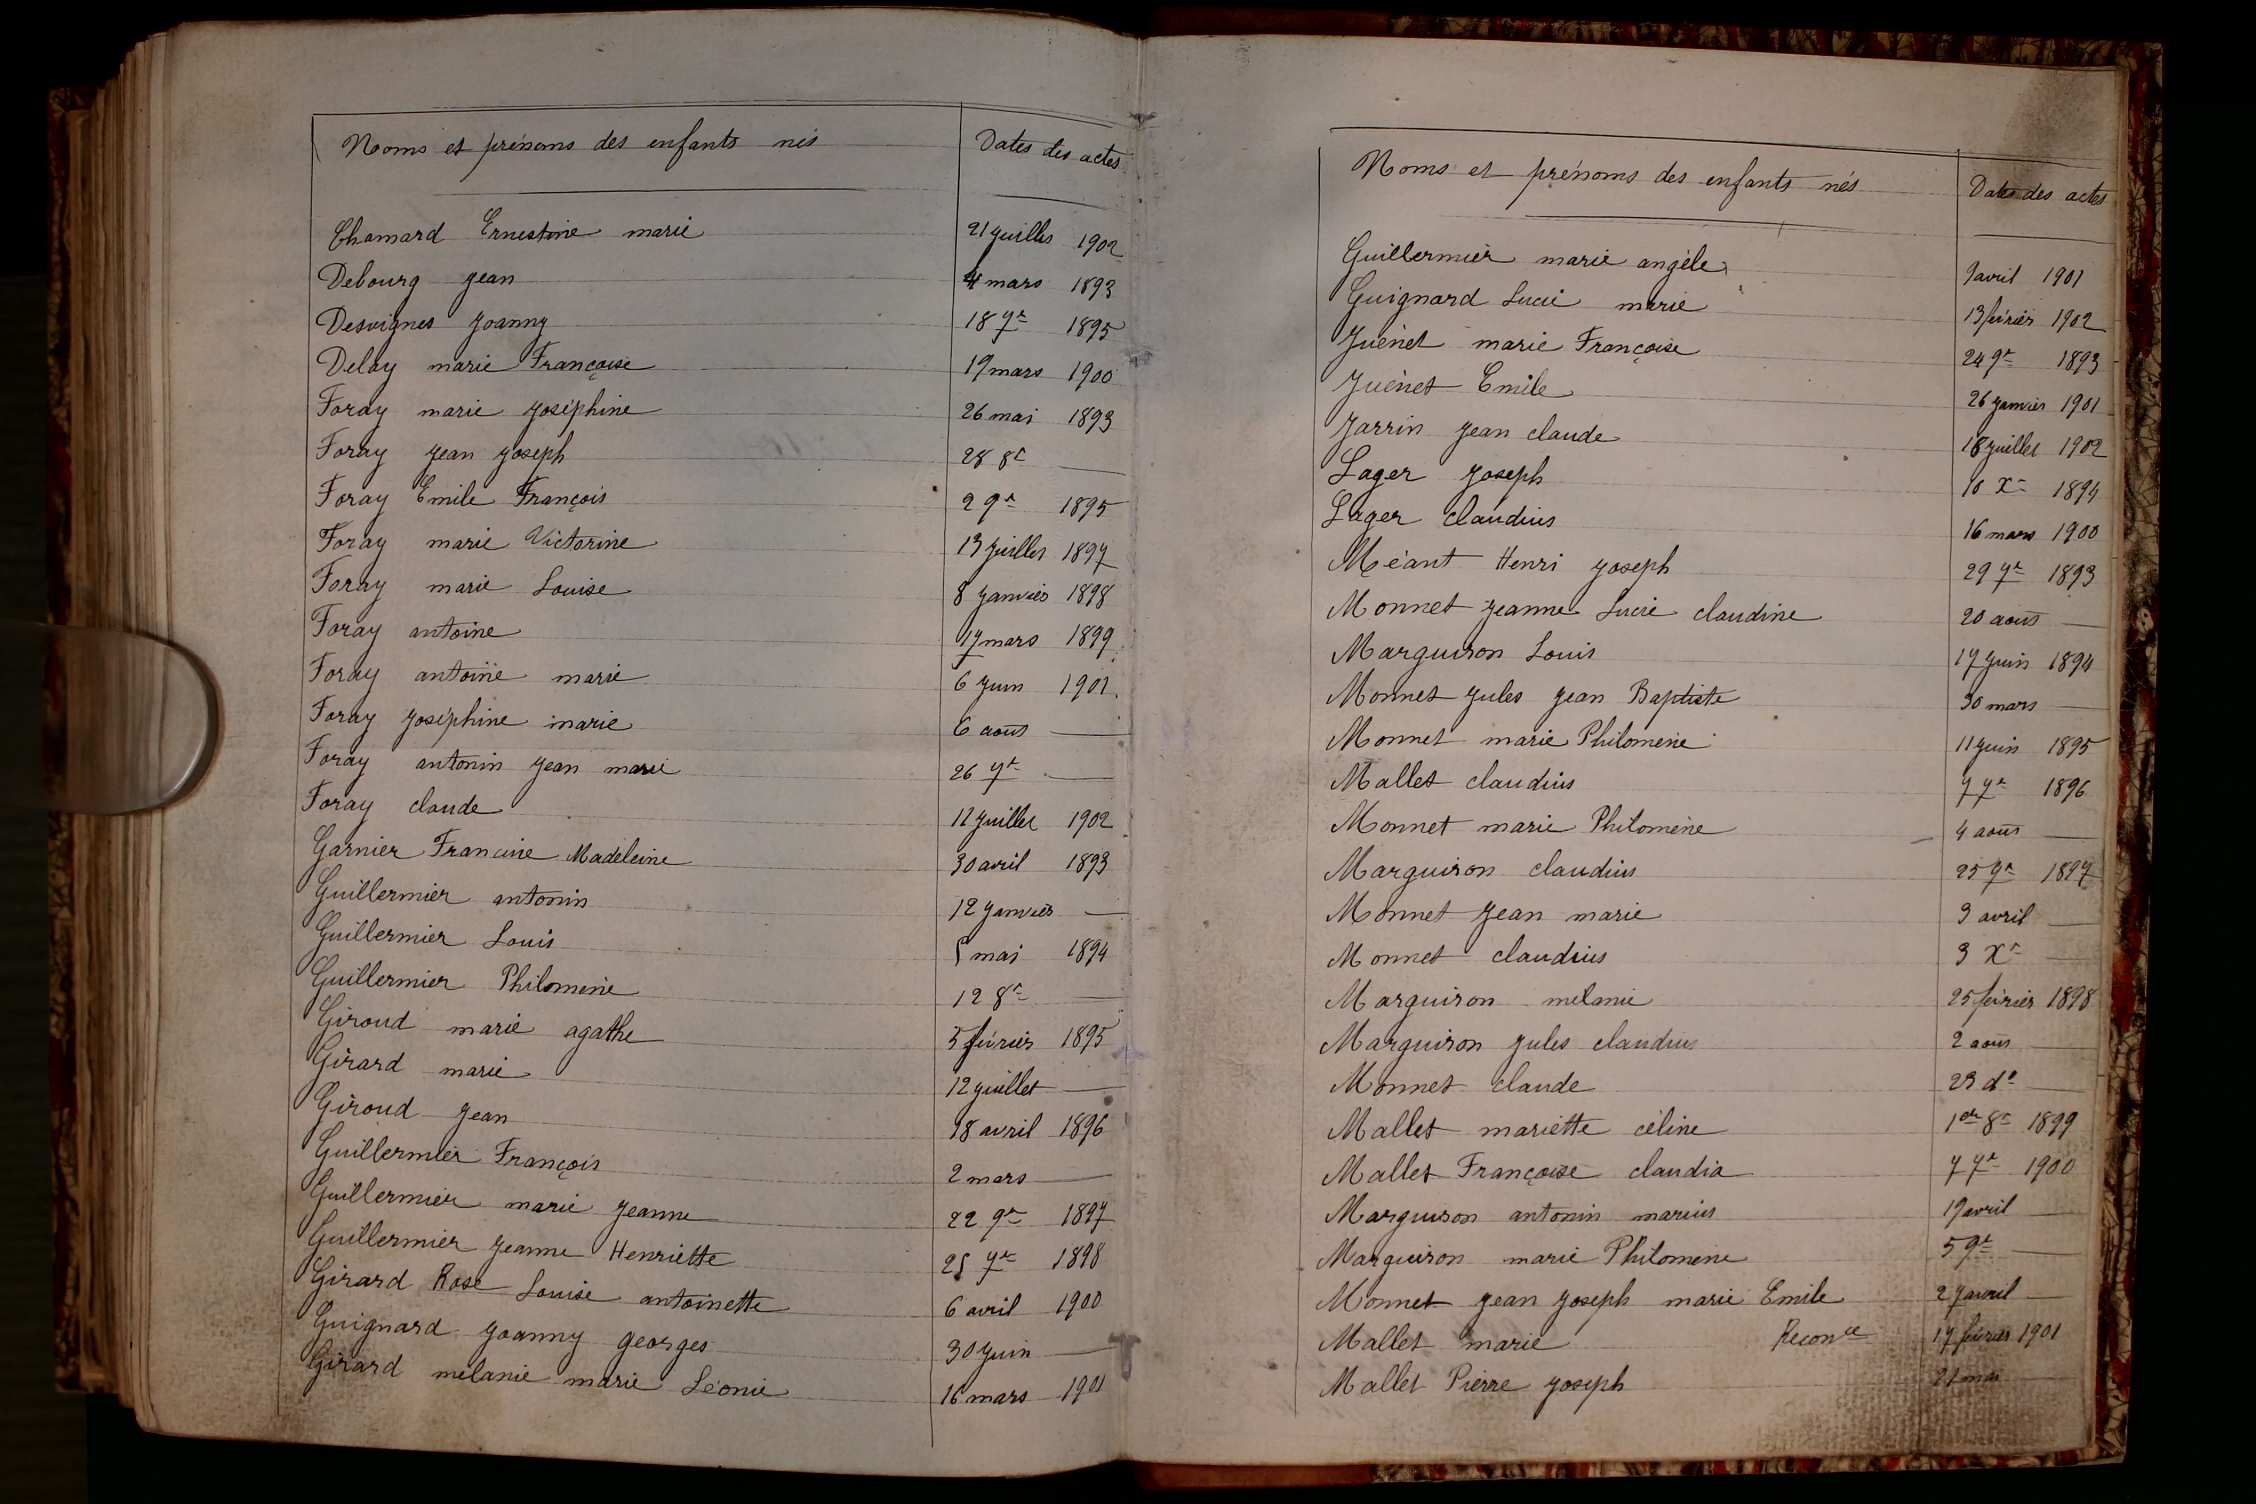 Noms et prénoms des enfants nés Dates des actes
Chamard Ernestine marie 21 juillet 1902
Debourg Jean 4 mars 1893
Desvignes Joanny 18 7re 1895
Delay marie Françoise 19 mars 1900
Foray marie Joséphine 26 mai 1893
Foray Jean Joseph 28 8re —
Foray Emile François 2 9re 1895
Foray marie Victorine 13 Juillet 1897
Foray marie Louise 8 Janvier 1898
Foray antoine 17 mars 1899
Foray antoine marie 6 Juin 1901
Foray Joséphine marie 6 aout —
Foray antonin Jean marie 26 7re —
Foray claude 12 Juillet 1902
Garnier Francine Madeleine 30 avril 1893
Guillermier antonin 12 Janvier —
Guillermier Louis 5 mai 1894
Guillermier Philomène 12 8re —
Giroud marie agathe 5 février 1895
Girard marie 12 juillet —
Giroud Jean 18 avril 1896
Guillermier François 2 mars —
Guillermier marie Jeanne 22 9re 1897
Guillermier Jeanne Henriette 25 7re 1898
Girard Rose Louise antoinette 6 avril 1900
Guignard Joanny georges 30 Juin —
Girard mélanie marie Léonie 16 mars 1901
Noms et prénoms des enfants nés Dates des actes
Guillermier marie angèle 9 avril 1901
Guignard Lucie marie 13 février 1902
Juénet marie Françoise 24 9re 1893
Juénet Emile 26 Janvier 1901
Jarrin Jean claude 18 Juillet 1902
Lager Joseph 10 Xre 1894
Lager claudius 16 mars 1900
Méant Henri Joseph 29 7re 1893
Monnet Jeanne Lucie claudine 20 aout —
Marguiron Louis 17 Juin 1894
Monnet Jules Jean Baptiste 30 mars —
Monnet marie Philomène 11 Juin 1895
Mallet claudius 7 7re 1896
Monnet marie Philomène 4 aout —
Marguiron claudius 25 9re 1897
Monnet Jean marie 3 avril —
Monnet claudius 3 Xre —
Marguiron mélanie 25 février 1898
Marguiron Jules claudius 2 aout —
Monnet claude 23 do —
Mallet mariette céline 1er 8re 1899
Mallet Françoise claudia 7 7re 1900
Marguiron antonin marius 19 avril —
Marguiron marie Philomène 5 9re —
Monnet Jean Joseph marie Emile 27 avril —
Mallet marie Reconce 17 février 1901
Mallet Pierre Joseph 21 mai